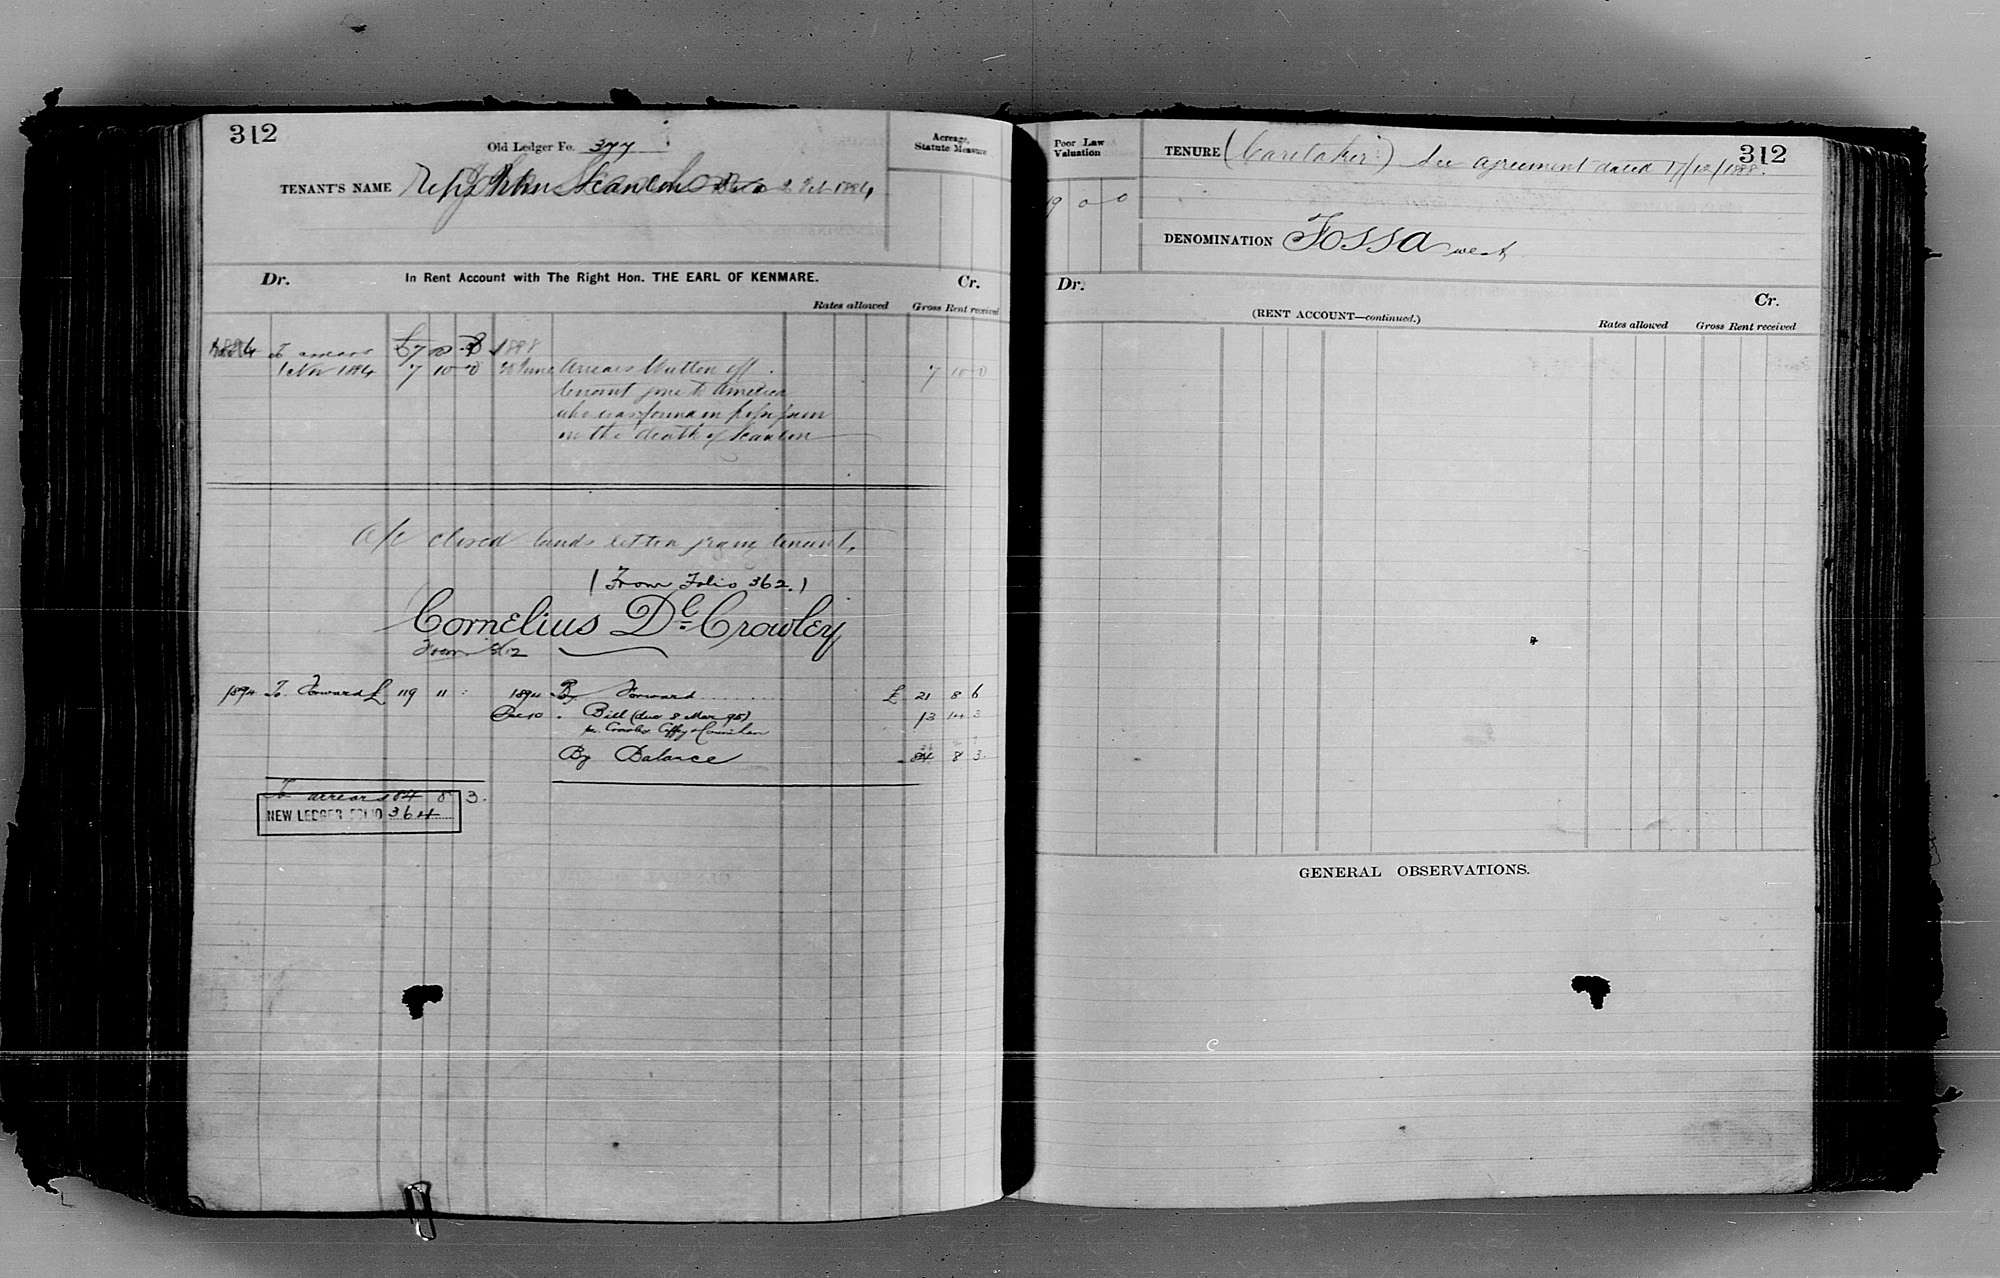 312
Old Ledger Fo. 377
Acreage, Statute Measure
TENANT'S NAME Reps John Scanlon 1884
In Rent Account with The Right Hon. THE EARL OF KENMARE.
Dr.
Cr.
Rates allowed
Gross Rent received
1884 To arrears £7 10 1888
1 Nov 1884 7 10 0 June Arrears Written off 7 10 0
tenant gone to America
who was in
on the death of Scanlon
a/c closed lands tenant
(From Folio 362.)
Cornelius Dc. Crowley
From
1894 To Forward £ 119 11 : 1894 By Forward £ 21 8 6
Dec 10 . Bill (due 8 Mar 95) 13 14 3
per Crowley Coffey
By Balance 84 8 3
To arrears 84 8 3.
NEW LEDGER FOLIO 364
Poor Law Valuation
19 0 0
TENURE (Caretaker) See agreement dated 17/12/1888.
312
DENOMINATION Fossa west
Dr.
Cr.
(RENT ACCOUNT—continued.)
Rates allowed
Gross Rent received
GENERAL OBSERVATIONS.